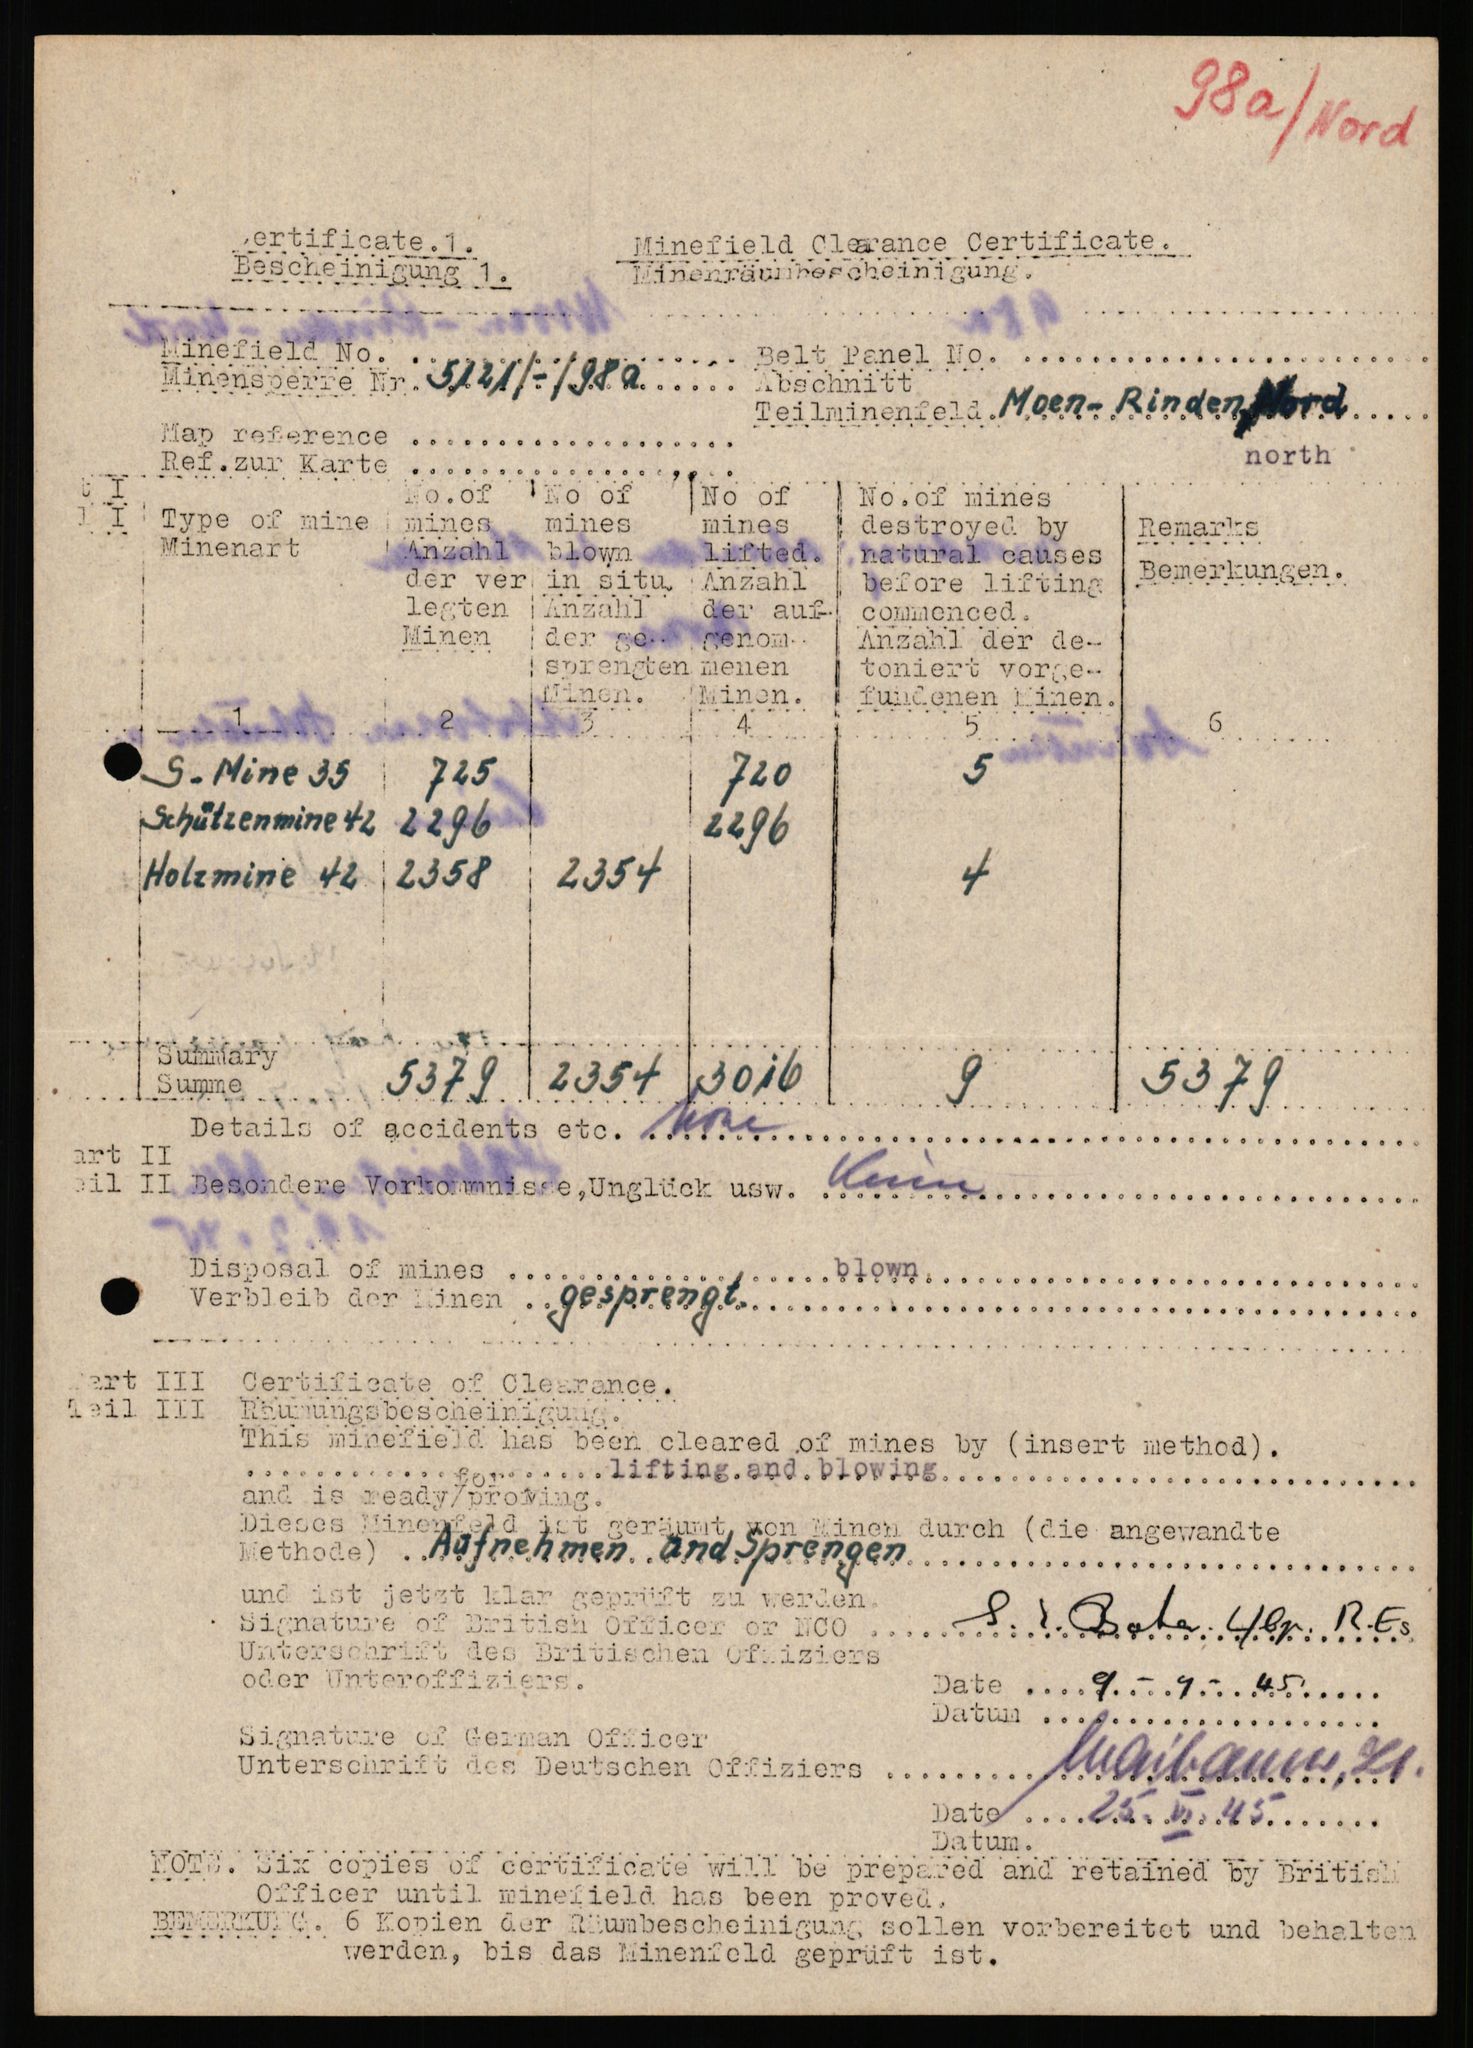 98a/Nord
ertificate.1.
Minefield Clearance Certificate.
Bescheinigung 1.
Minenräumbescheinigung.
Minefield No. Belt Panel No.
Minensperre Nr. 5121/-/98a Abschnitt
Teilminenfeld. Moen-Rinden, Nord
Map reference
north
Ref.zur Karte
t I
I
Type of mine
Minenart
No.of
mines
Anzahl
der ver
legten
Minen
No of
mines
blown
in situ.
Anzahl
der ge-
sprengten
Minen.
No of
mines
lifted.
Anzahl
der auf-
genom-
menen
Minen.
No.of mines
destroyed by
natural causes
before lifting
commenced.
Anzahl der de-
toniert vorge-
fundenen Minen.
Remarks
Bemerkungen.
1 2 3 4 5 6
S-Mine 35 725 720 5
Schützenmine 42 2296 2296
Holzmine 42 2358 2354 4
Summary
Summe 5379 2354 3016 9 5379
Details of accidents etc. None
art II
eil II Besondere Vorkommnisse,Unglück usw. Keine
Disposal of mines blown
Verbleib der Minen gesprengt.
art III Certificate of Clearance.
Teil III Räumungsbescheinigung.
This minefield has been cleared of mines by (insert method).
lifting and blowing
for
and is ready/proving.
Dieses Minenfeld ist geräumt von Minen durch (die angewandte
Methode) Aufnehmen and Sprengen
und ist jetzt klar geprüft zu werden.
Signature of British Officer or NCO R.Es
Unterschrift des Britischen Offiziers
oder Unteroffiziers.
Date 9-7-45
Datum
Signature of German Officer
Unterschrift des Deutschen Offiziers Maibaum, Lt.
Date 25.VI.45
Datum.
NOTE. Six copies of certificate will be prepared and retained by British
Officer until minefield has been proved.
BEMERKUNG. 6 Kopien der Räumbescheinigung sollen vorbereitet und behalten
werden, bis das Minenfeld geprüft ist.